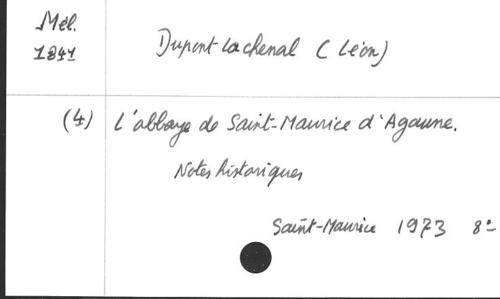 Mél.
1841
Dupont Lachenal (Léon)
(4) L'abbaye de Saint-Maurice d'Agaune.
Notes historiques
Saint-Maurice 1973 8°